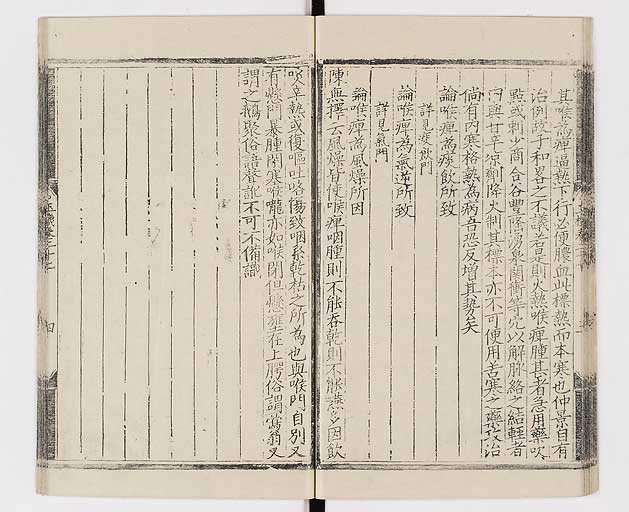 其喉為痺逼熱下行必便膿血此標熱而本寒也仲景自有
治例故子和畧之不議若是則火熱喉痺腫甚者急用藥吹
點或刺少商合谷豐隆湧泉關衝等穴以解脉絡之結輕者
只與甘辛凉劑降火制其標本亦不可便用苦寒之藥攻治
倘有内寒格熱為病吾恐反增其勢矣
論喉痺為痰飲所致
詳見痰飲門
論喉痺為氣逆所致
詳見氣門
論喉痺為風燥所因
陳無擇云風燥皆使喉痺咽腫則不能吞乾則不能嚥多因飲
啖辛熱或復嘔吐咯傷致咽系乾枯之所為也與喉門自別又
有懸壅暴腫閉塞喉嚨亦如喉閉但懸壅在上腭俗謂鵞翁又
謂之鵝聚俗語聲訛不可不備識
四